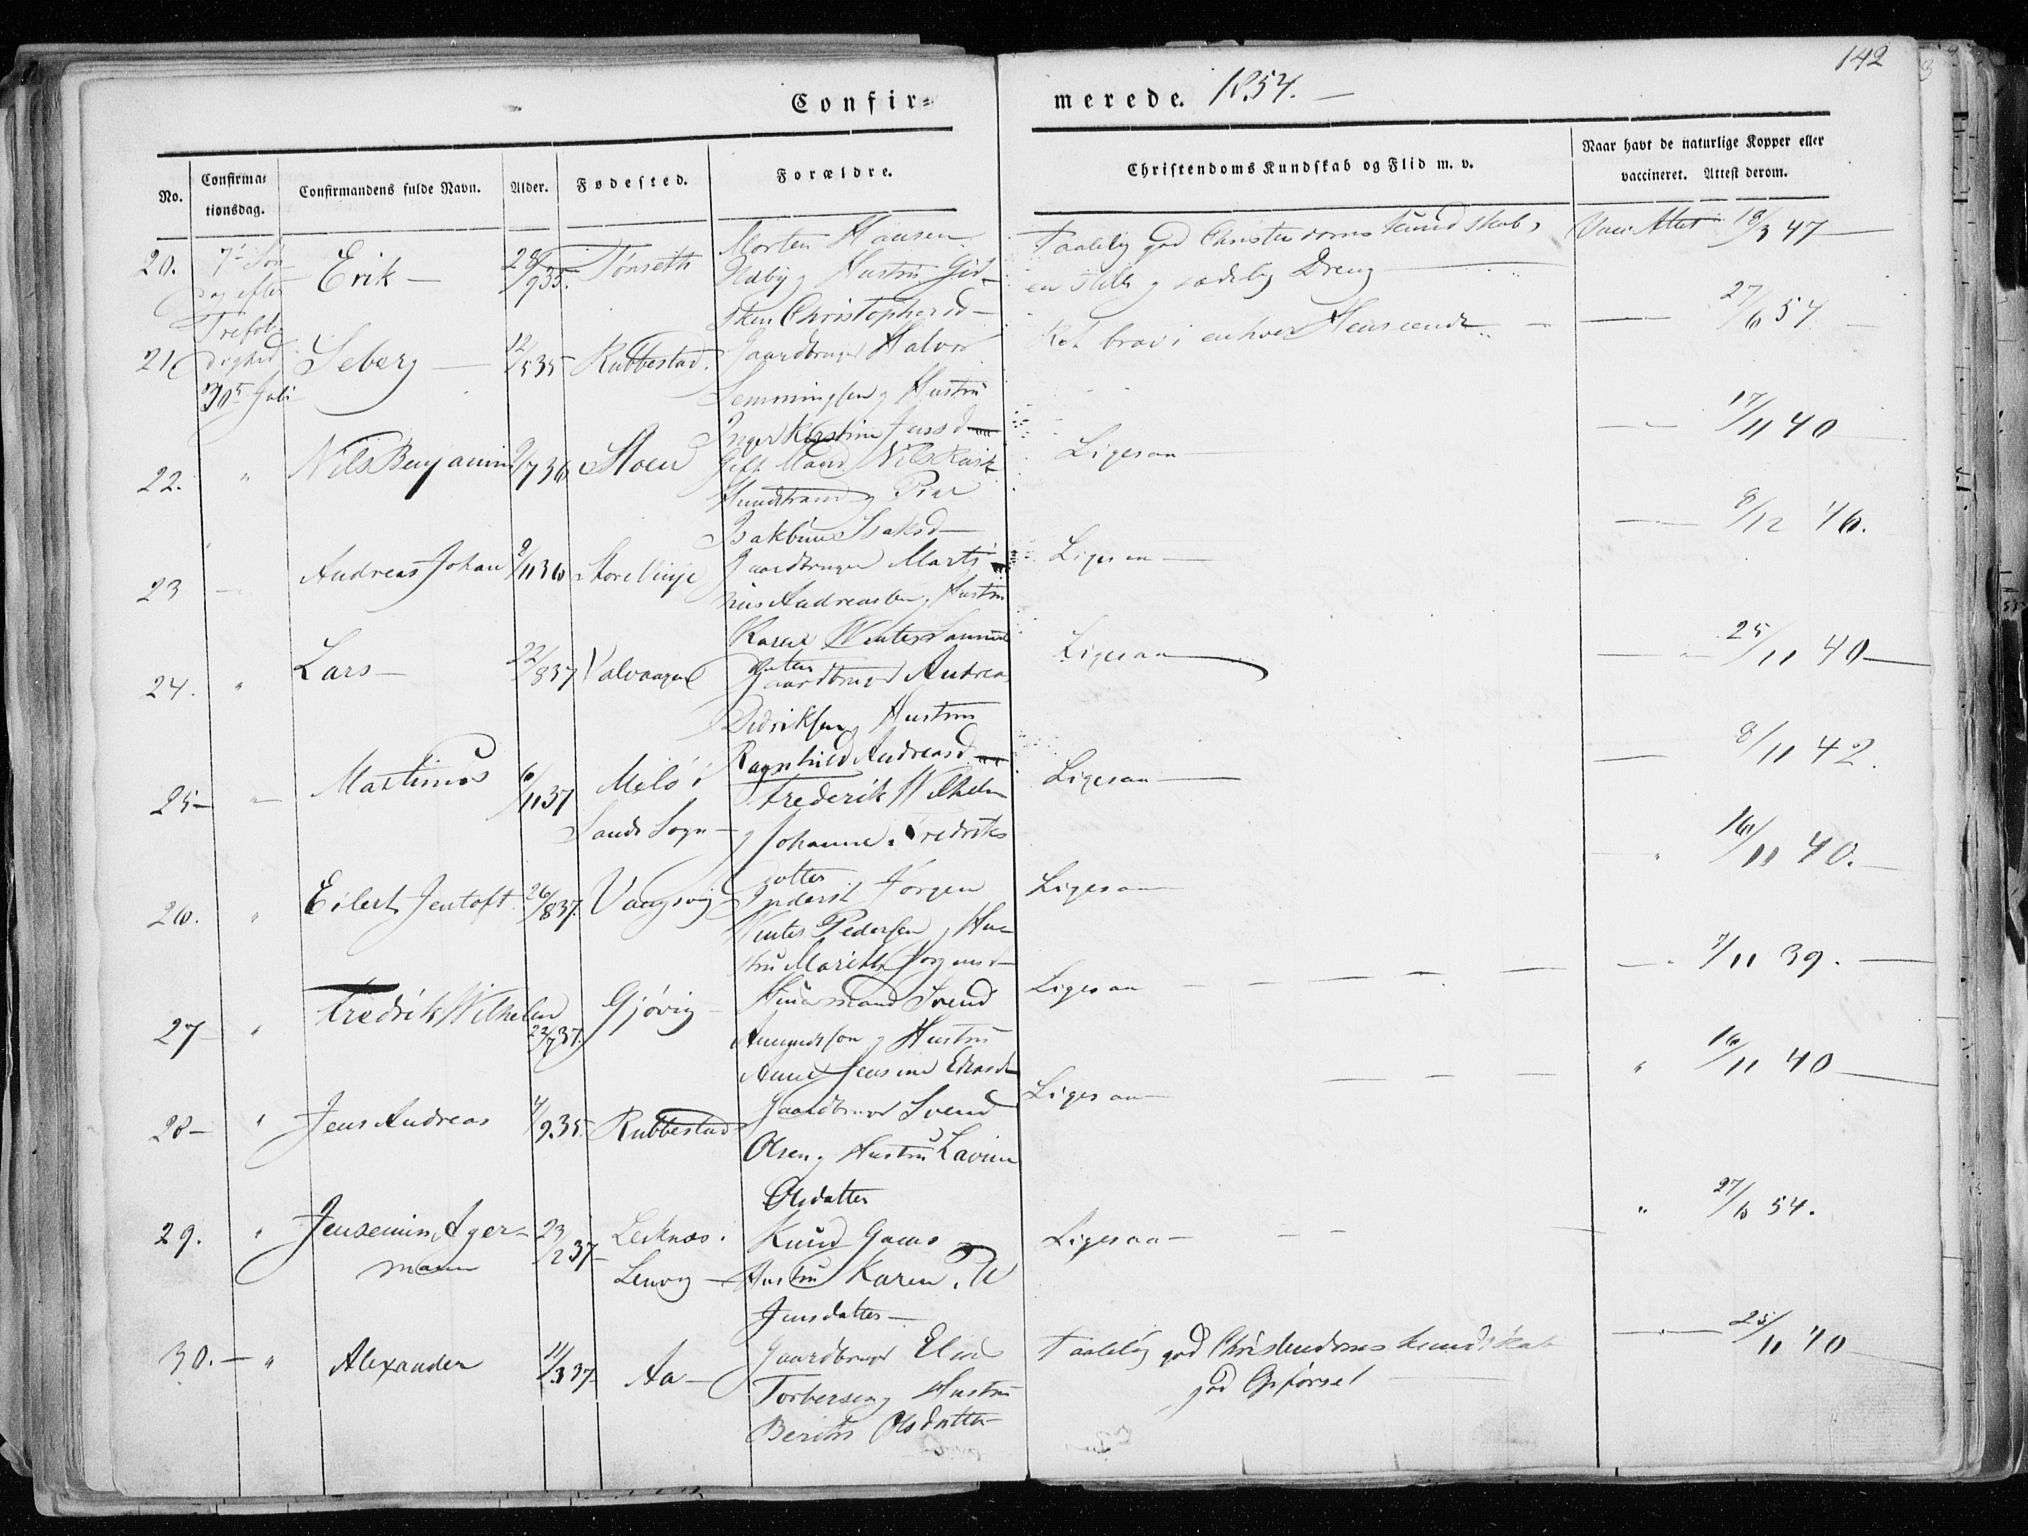 142
Confir=
merede. 1854.
No.
Confirma=
tionsdag.
Confirmandens fulde Navn.
Alder.
Fødested.
Forældre.
Christendoms Kundskab og Flid m. v.
Naar havt de naturlige Kopper eller
vaccineret. Attest derom.
20.
7de Søn
dag efter
Trefol
dighed
30 Juli
Erik
28/9 35.
Tønseth
Morten Hansen
Hustru
Christophersd
Taalelig god Christendoms Kundskab,
en stille og sædelig Dreng
Vacc. Attest 18/3 47
21
Seberg
12/5 35
Rubbestad.
Gaardbruger Halvor
Lemmingsen og Hustru
Inger Kirstine Jensd
brav i enhver Henseende
27/6 54
22.
Nils Benjamin
9/7 36
Stoen
Gift Mand Nils
og Pige
Isaksd
Ligesaa
17/11 40
23
Andreas Johan
9/11 36
Store Vinje
Gaardbruger Marti
nus Andreassen og Hustru
Karen Winter Samuels
datter
Ligesaa
8/12 46.
24.
Lars
22/8 37
Valvaagen
Gaardbruger Andreas
Didriksen og Hustru
Ragnhild Andreasd
Ligesaa
25/11 40
25
Martinus
6/11 37
Melø i
Sands Sogn
Frederik Wilhelm
og Johanne Fredriks
datter
Ligesaa
8/11 42.
26.
Eilert Jentoft
26/8 37.
Vangsvig
Inderst Jørgen
Winter Pedersen og Hu
stru Marith Jørgensd
Ligesaa
16/11 40.
27
Fredrik Wilhelm
22/7 37.
Gjøvig
Huusmand Svend
Amundsen og Hustru
Anne Jensine
Ligesaa
7/11 39.
28
Jens Andreas
4/9 35.
Rubbestad
Gaardbruger Svend
Olsen og Hustru Lavine
Olsdatter
Ligesaa
16/11 40
29.
Jensenius Ager=
mann
23/2 37
Leiknæs i
Lenvig
Knud Gams
Hustru Karen
Jensdatter
Ligesaa
27/6 54.
30.
Alexander
11/3 37
Aa
Gaardbruger Elias
Torbersen og Hustru
Berith Olsdatter
Taalelig god Christendoms Kundskab
god Opførsel
25/11 40